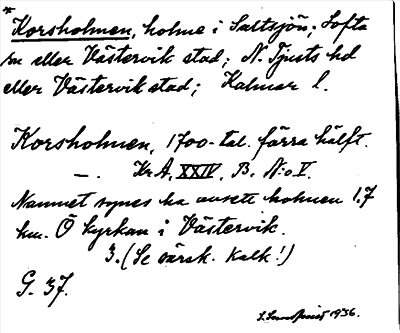 * Korsholmen, holme i Saltsjön; Lofta
sn eller Västervik stad; N. Tjusts hd
eller Västervik stad; Kalmar l.
Korsholmen, 1700-tal. förra hälft.
—. Kr A, XXIV, B, N:o V.
Namnet synes ha avsett holmen 1,7
km. Ö kyrkan i Västervik.
3. (Se särsk. kalk!)
G. 37.
1936.